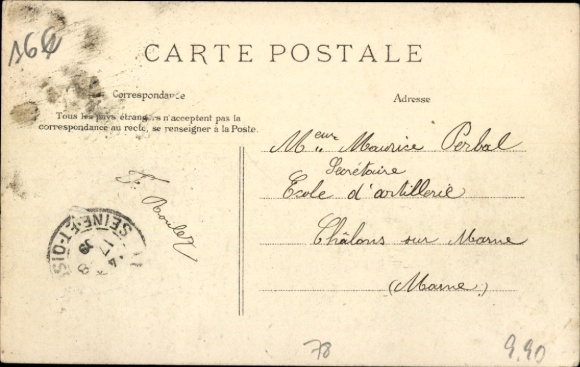 160
CARTE POSTALE
Correspondance
Adresse
Tous les pays étrangers n'acceptent pas la
correspondance au recto, se renseigner à la Poste.
Meur Maurice Perbal
Secrétaire
Ecole d'artillerie
Châlons sur Marne
(Marne)
F. Roulez
SEINE-ET-OIS
17
4
78
9,90